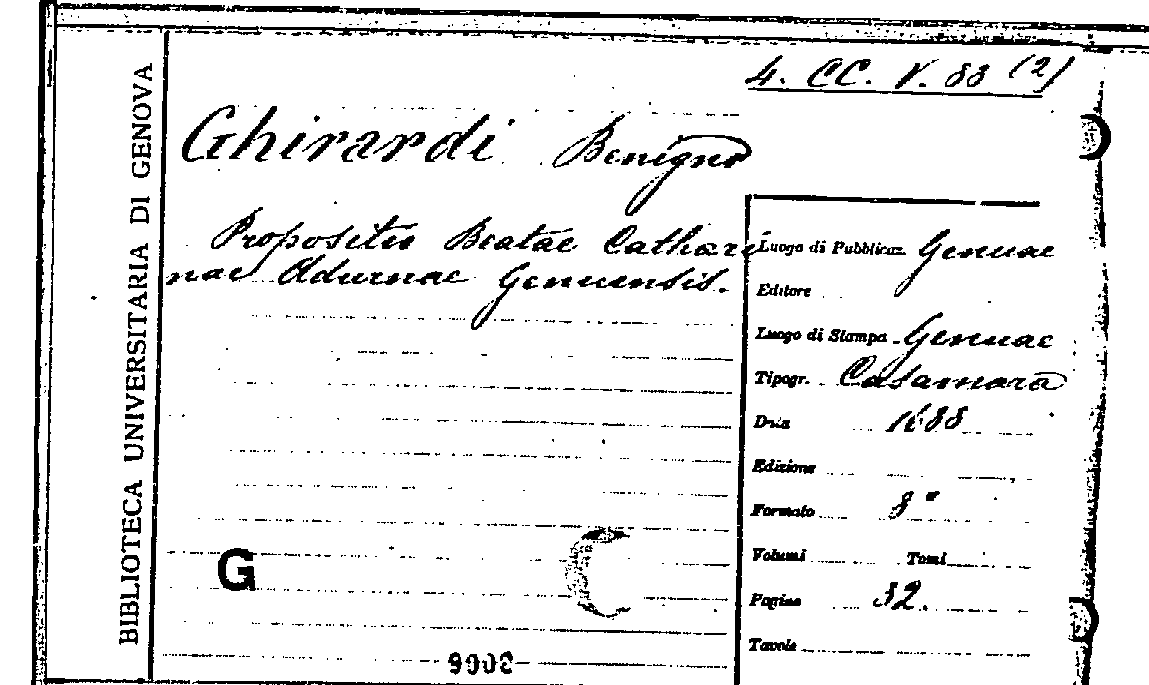 4. CC. V. 88 (2)
BIBLIOTECA UNIVERSITARIA DI GENOVA
Ghirardi Benigno
Propositio Beatae Cathari
nae Adurnae Genuensis.
Luogo di Pubblicaz. Genuae
Editore
Luogo di Stampa Genuae
Tipogr. Casamara
Data 1688
Edizione
Formato 8°
Volumi Tomi
Pagine 32.
Tavole
G